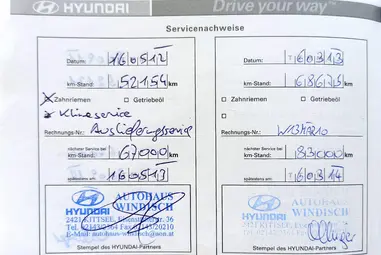 HYUNDAI Drive your way™
Servicenachweise
Datum: 160512
km-Stand: 52154 km
☒ Zahnriemen ☐ Getriebeöl
Klimaservice
Rechnungs-Nr.:
nächster Service bei
km-Stand: 67000 km
spätestens am: 160513
HYUNDAI AUTOHAUS WINDISCH
2421 KITTSEE, Eisenstädterstr. 36
Tel. 02143/2364 Fax 02143/20210
E-Mail: autohaus-windisch@aon.at
Stempel des HYUNDAI-Partners
Datum: 160313
km-Stand: km
☐ Zahnriemen ☐ Getriebeöl
☐
Rechnungs-Nr.:
nächster Service bei
km-Stand: 83000 km
spätestens am: 160314
HYUNDAI AUTOHAUS WINDISCH
Stempel des HYUNDAI-Partners